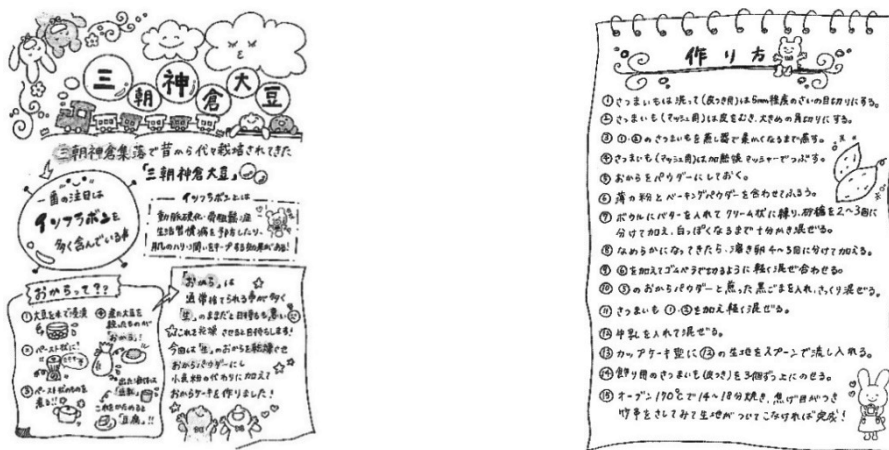 三朝神倉大豆
三朝神倉集落で昔から代々栽培されてきた
「三朝神倉大豆」
一番の注目は
イソフラボンを
多く含んでいる
イソフラボンとは
動脈硬化・骨粗鬆症
生活習慣病を予防したり、
肌のハリ・潤いをキープする効果がある!
おからって??
①大豆を水で浸漬
②ペースト状に!
③ペースト状のものを
煮る!!
④煮た大豆を
絞ったものが
「おから」!
出た液体は
「豆乳」
これをかためると
「豆腐」!!
「おから」は
通常捨てられる事が多く
「生」のままだと日持ちも悪い
これを乾燥させると日持ちします!
今回は「生」のおからを乾燥させ
おからパウダーにし
小麦粉の代わりに加えて
おからケーキを作りました!
作り方
①さつまいもは洗って(皮つき用)は5mm程度のさいの目切りにする。
②さつまいも(マッシュ用)は皮をむき、大きめの角切りにする。
③①・②のさつまいもを蒸し器で柔かくなるまで蒸す。
④さつまいも(マッシュ用)は加熱後マッシャーでつぶす。
⑤おからをパウダーにしておく。
⑥薄力粉とベーキングパウダーを合わせてふるう。
⑦ボウルにバターを入れてクリーム状に練り、砂糖を2〜3回に
分けて加え、白っぽくなるまで十分かき混ぜる。
⑧なめらかになってきたら、溶き卵4〜5回に分けて加える。
⑨⑥を加えてゴムベラで切るように軽く混ぜ合わせる。
⑩⑤のおからパウダーと煎った黒ごまを入れ、さっくり混ぜる。
⑪さつまいも①・③を加え軽く混ぜる。
⑫牛乳を入れて混ぜる。
⑬カップケーキ型に⑫の生地をスプーンで流し入れる。
⑭飾り用のさつまいも(皮つき)を3個ずつ上にのせる。
⑮オーブン170℃で14〜18分焼き、焦げ目がつき
竹串をさしてみて生地がついてこなければ完成!